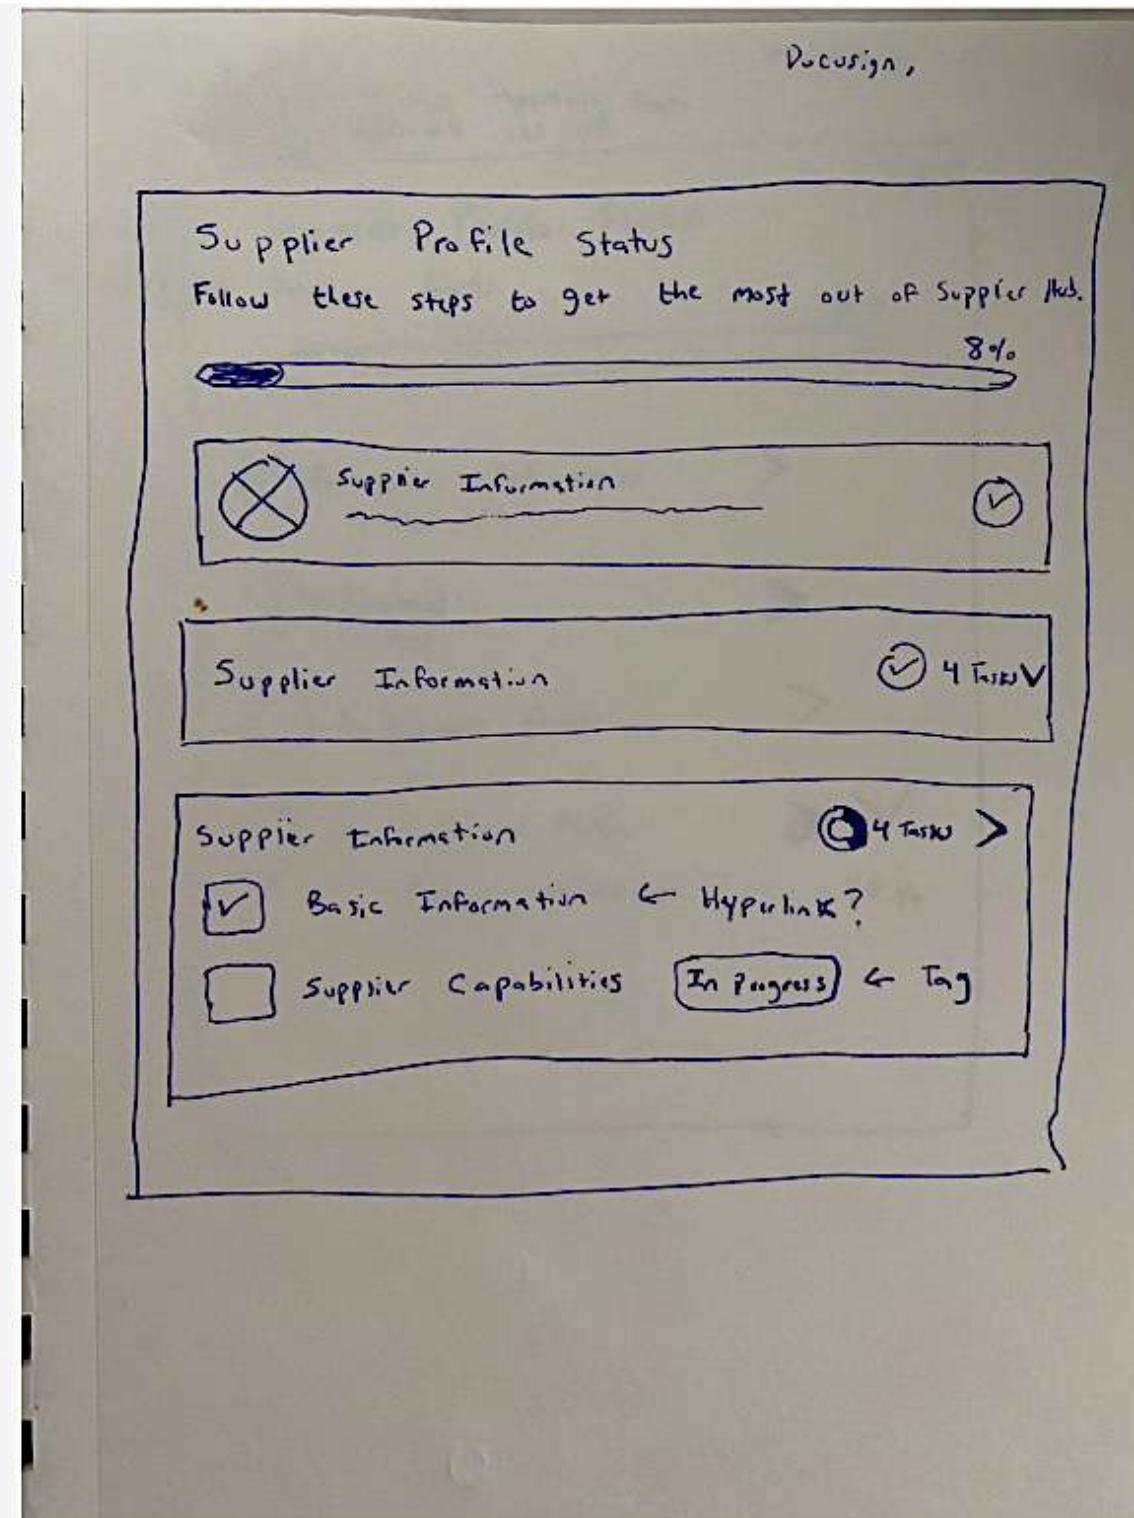 Docusign,
Supplier Profile Status
Follow these steps to get the most out of Supplier Hub.
8%
Supplier Information
Supplier Information 4 Tasks
Supplier Information 4 Tasks
Basic Information ← Hyperlink?
Supplier Capabilities In Progress ← Tag